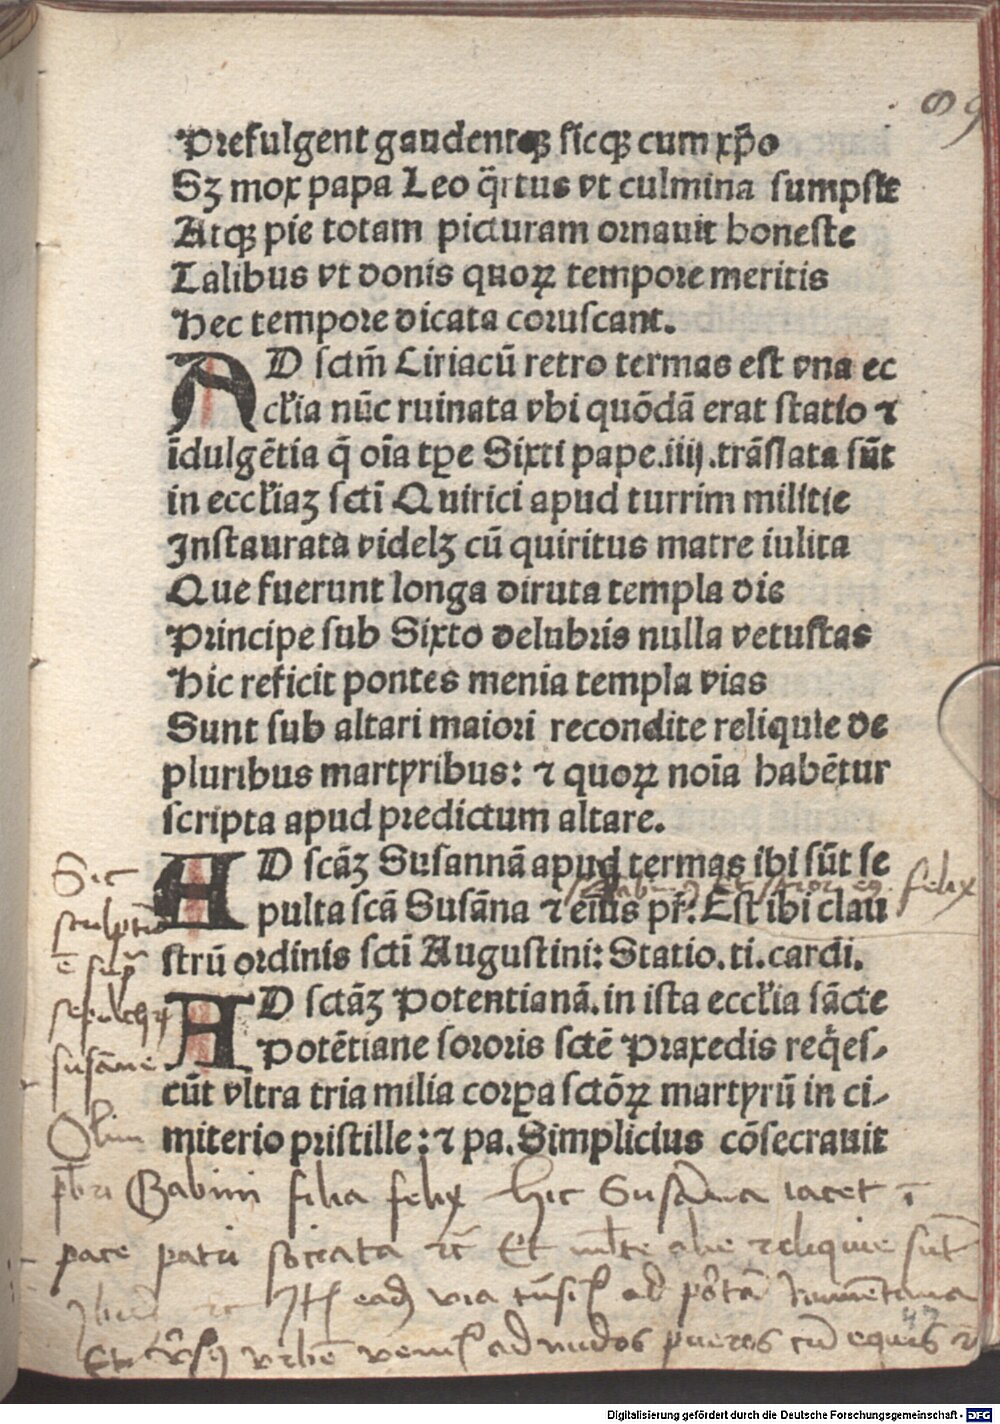 89
Prefulgent gaudentqꝫ sicqꝫ cum xp̄o
Sꝫ mox papa Leo q̈rtus vt culmina sumpsit
Atqꝫ pie totam picturam ornauit honeste
Talibus vt donis quoꝝ tempore meritis
Hec tempore dicata coruscant.
AD sctm̄ Ciriacū retro termas est vna ec
cl'ia nūc ruinata vbi quōdā erat statio ⁊
īdulgētia q̄ oīa tꝑe Sixti pape.iiij.trāslata sūt
in eccl'iaꝫ scti̅ Quirici apud turrim militie
Instaurata videlꝫ cū quiritus matre iulita
Que fuerunt longa diruta templa die
Principe sub Sixto delubris nulla vetustas
Hic reficit pontes menia templa vias
Sunt sub altari maiori recondite reliquie de
pluribus martyribus: ⁊ quoꝝ noīa habētur
scripta apud predictum altare.
AD scāꝫ Susannā apud termas ibi sūt se
felix
pulta scā Susāna ⁊ eius pr̄. Est ibi clau
strū ordinis scti̅ Augustini: Statio.ti.cardi.
AD sctāꝫ Potentianā.in ista eccl'ia sācte
Potētiane sororis sctē Praxedis req̈es⸗
cūt vltra tria milia corꝑa sctōꝝ martyrū in ci⸗
miterio pristille: ⁊ pa. Simplicius cōsecrauit
Sic
sculptū
ē sup̄
sepulchrū
susāne
Olim
p̄bri Gabini filia felix hic Susāna iacet ī
pace patri sociata ⁊c̄ Et m̄lte alie reliquie sūt
Ibidē ⁊c Itē eadē via ad portā Numētana
vrbē ad nudos pueros cū equis